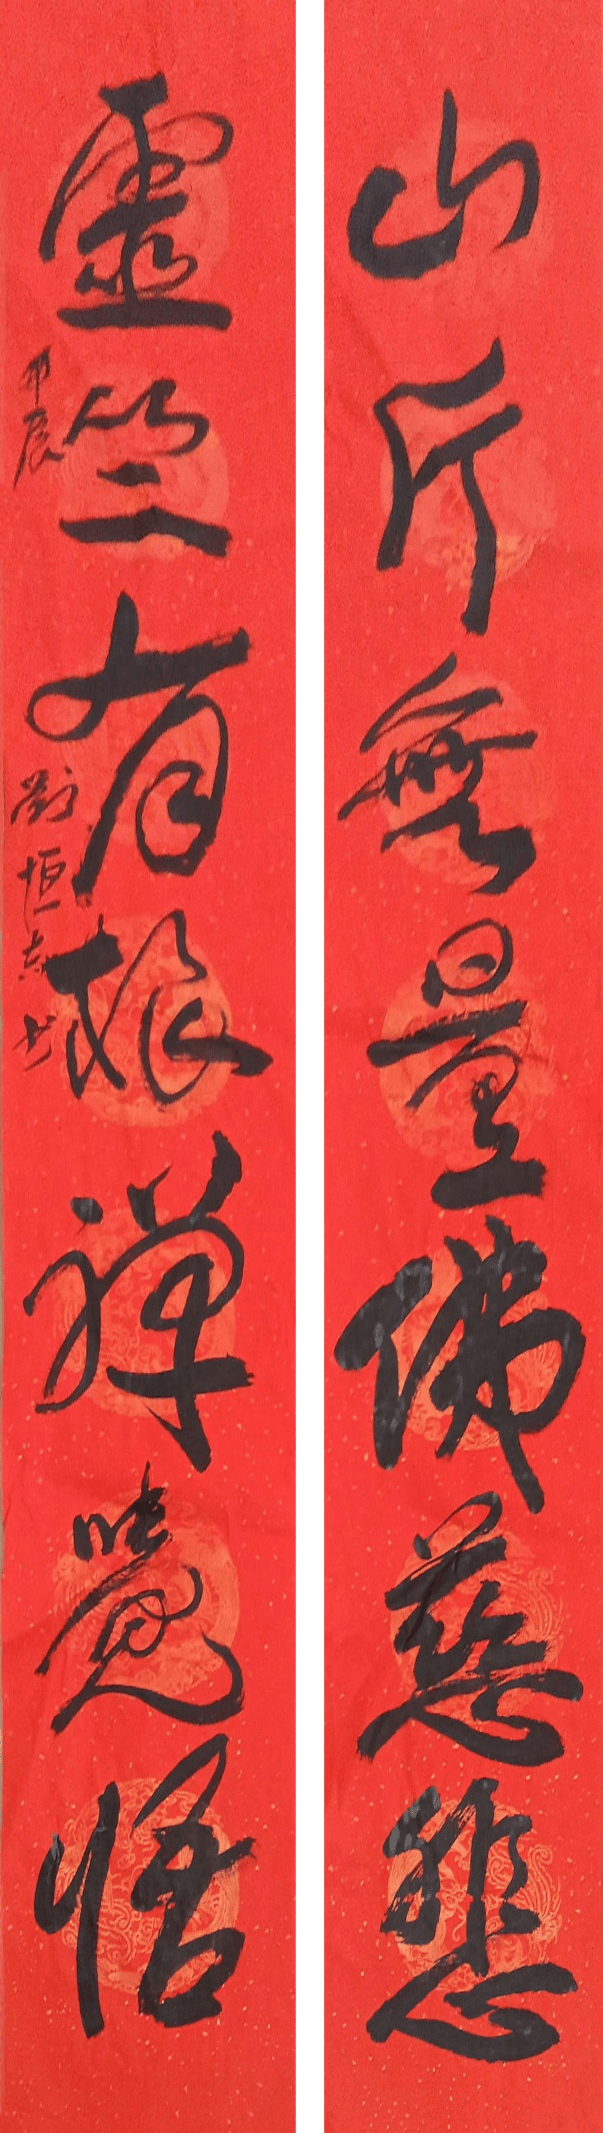 山斤無量佛慈悲
靈竺有根禪覺悟
甲辰 劉恒志书